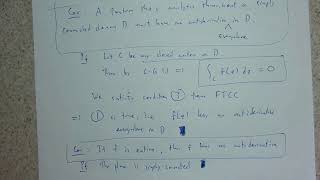 Cor: A function that is analytic throughout a simply
connected domain D must have an antiderivative in D.
everywhere
Pf: Let C be any closed contour in D.
Then by C-G ⇒ ∫_C f(z) dz = 0
We satisfy condition ③ from FTCC
⇒ ① is true, i.e. f(z) has an antiderivative
everywhere in D
Cor: If f is entire, then f has an antiderivative
Pf: The plane is simply connected